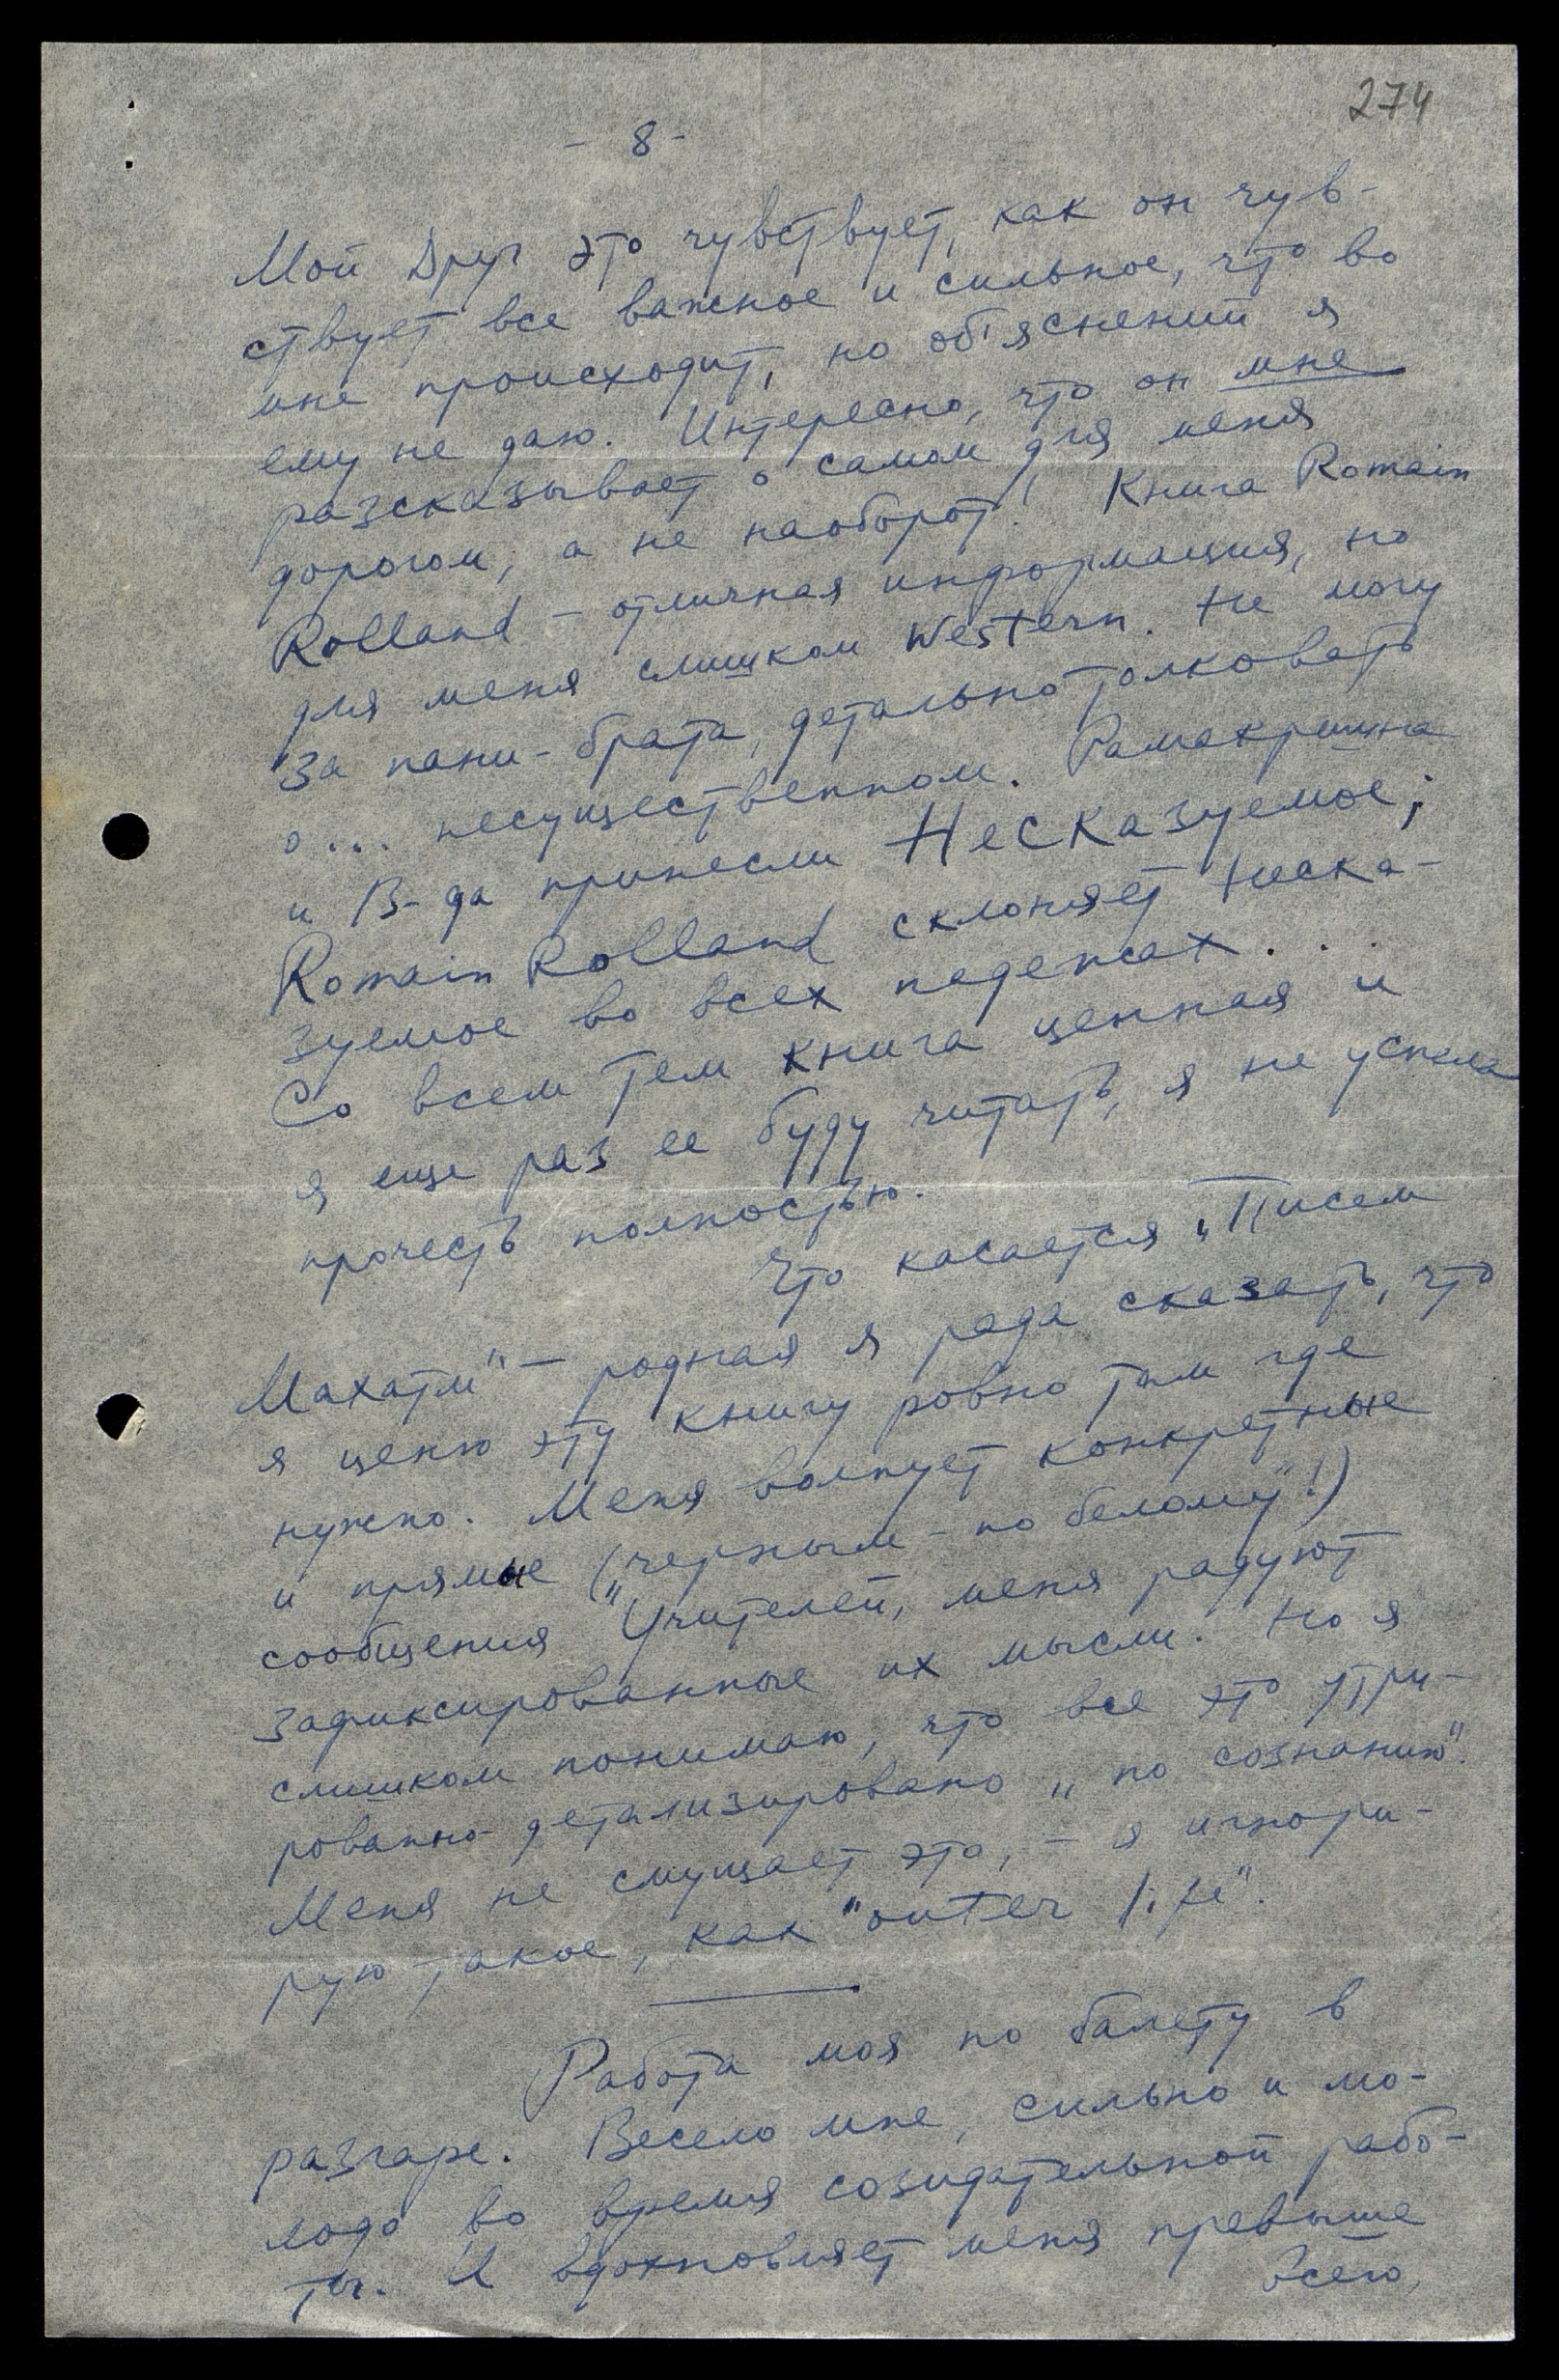 274
- 8 -
Мой Друг это чувствует, как он чув-
ствует все важное и сильное, что во
мне происходит, но об'яснений я
ему не даю. Интересно, что он мне
разсказывает о самом для меня
дорогом, а не наоборот! Книга Romain
Rolland - отличная информация, но
для меня слишком Western. Не могу
за пани-брата, детально толковать
о... несущественном. Рамакришна
и В-да принесли Несказуемое;
Romain Rolland склоняет Неска-
зуемое во всех падежах...
Со всем тем книга ценная и
я еще раз ее буду читать, я не успела
прочесть полностью.
Что касается „Писем
Махатм" - родная я рада сказать, что
я ценю эту книгу ровно там где
нужно. Меня волнует конкретные
и прямые („черным - по белому"!)
сообщения Учителей, меня радуют
зафиксированные их мысли. Но я
слишком понимаю, что все это утри-
ровано-детализировано „по сознанию".
Меня не смущает это, - я игнори-
рую такое, как "outer life".
Работа моя по балету в
разгаре. Весело мне, сильно и мо-
лодо во время созидательной рабо-
ты. И вдохновляет меня превыше
всего,